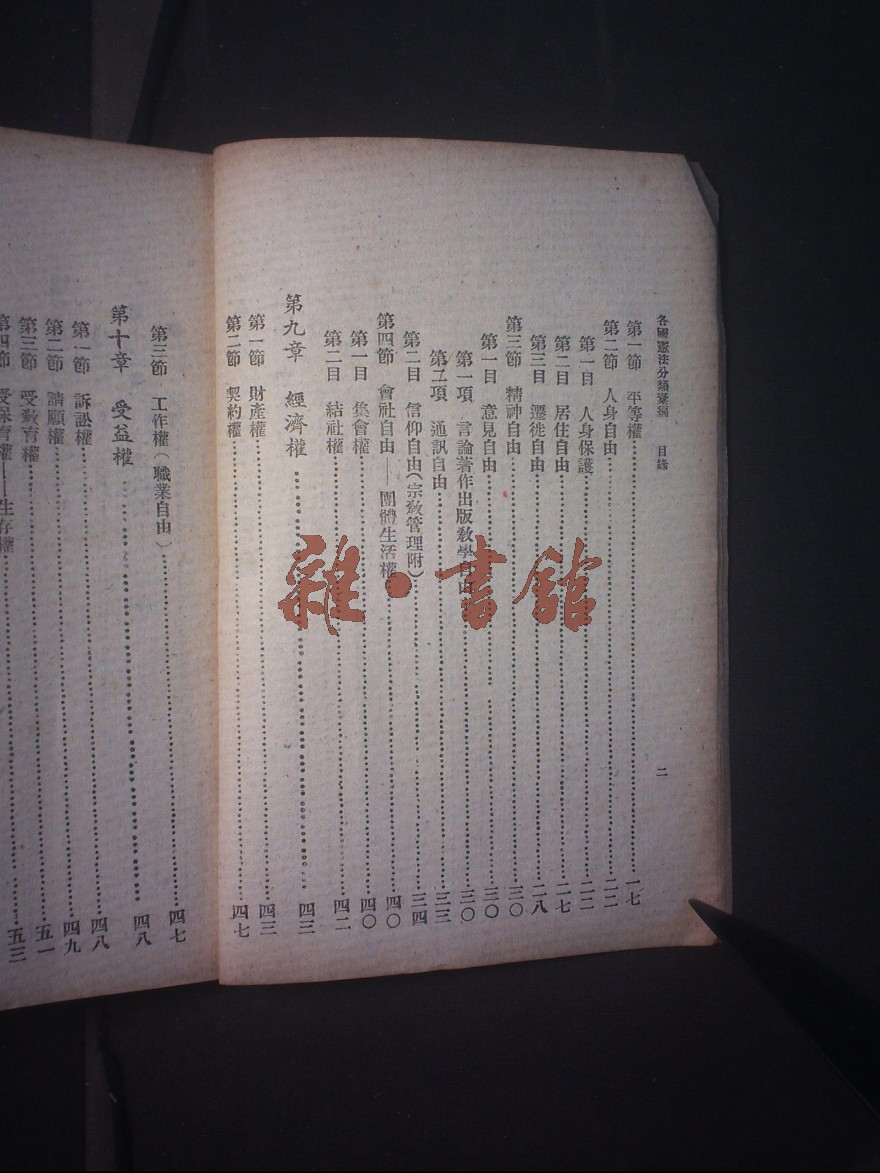 各國憲法分類彙編　目錄　二
第一節　平等權……一七
第二節　人身自由……二二
第一目　人身保護……二二
第二目　居住自由……二七
第三目　遷徙自由……二八
第三節　精神自由……三〇
第一目　意見自由……三〇
第一項　言論著作出版敎學自由……三〇
第二項　通訊自由……三三
第二目　信仰自由（宗敎管理附）……三四
第四節　會社自由——團體生活權……四〇
第一目　集會權……四〇
第二目　結社權……四二
第九章　經濟權……四三
第一節　財產權……四三
第二節　契約權……四七
第三節　工作權（職業自由）……四七
第十章　受益權……四八
第一節　訴訟權……四八
第二節　請願權……四九
第三節　受敎育權……五一
第四節　受保育權——生存權……五三
雜·書館